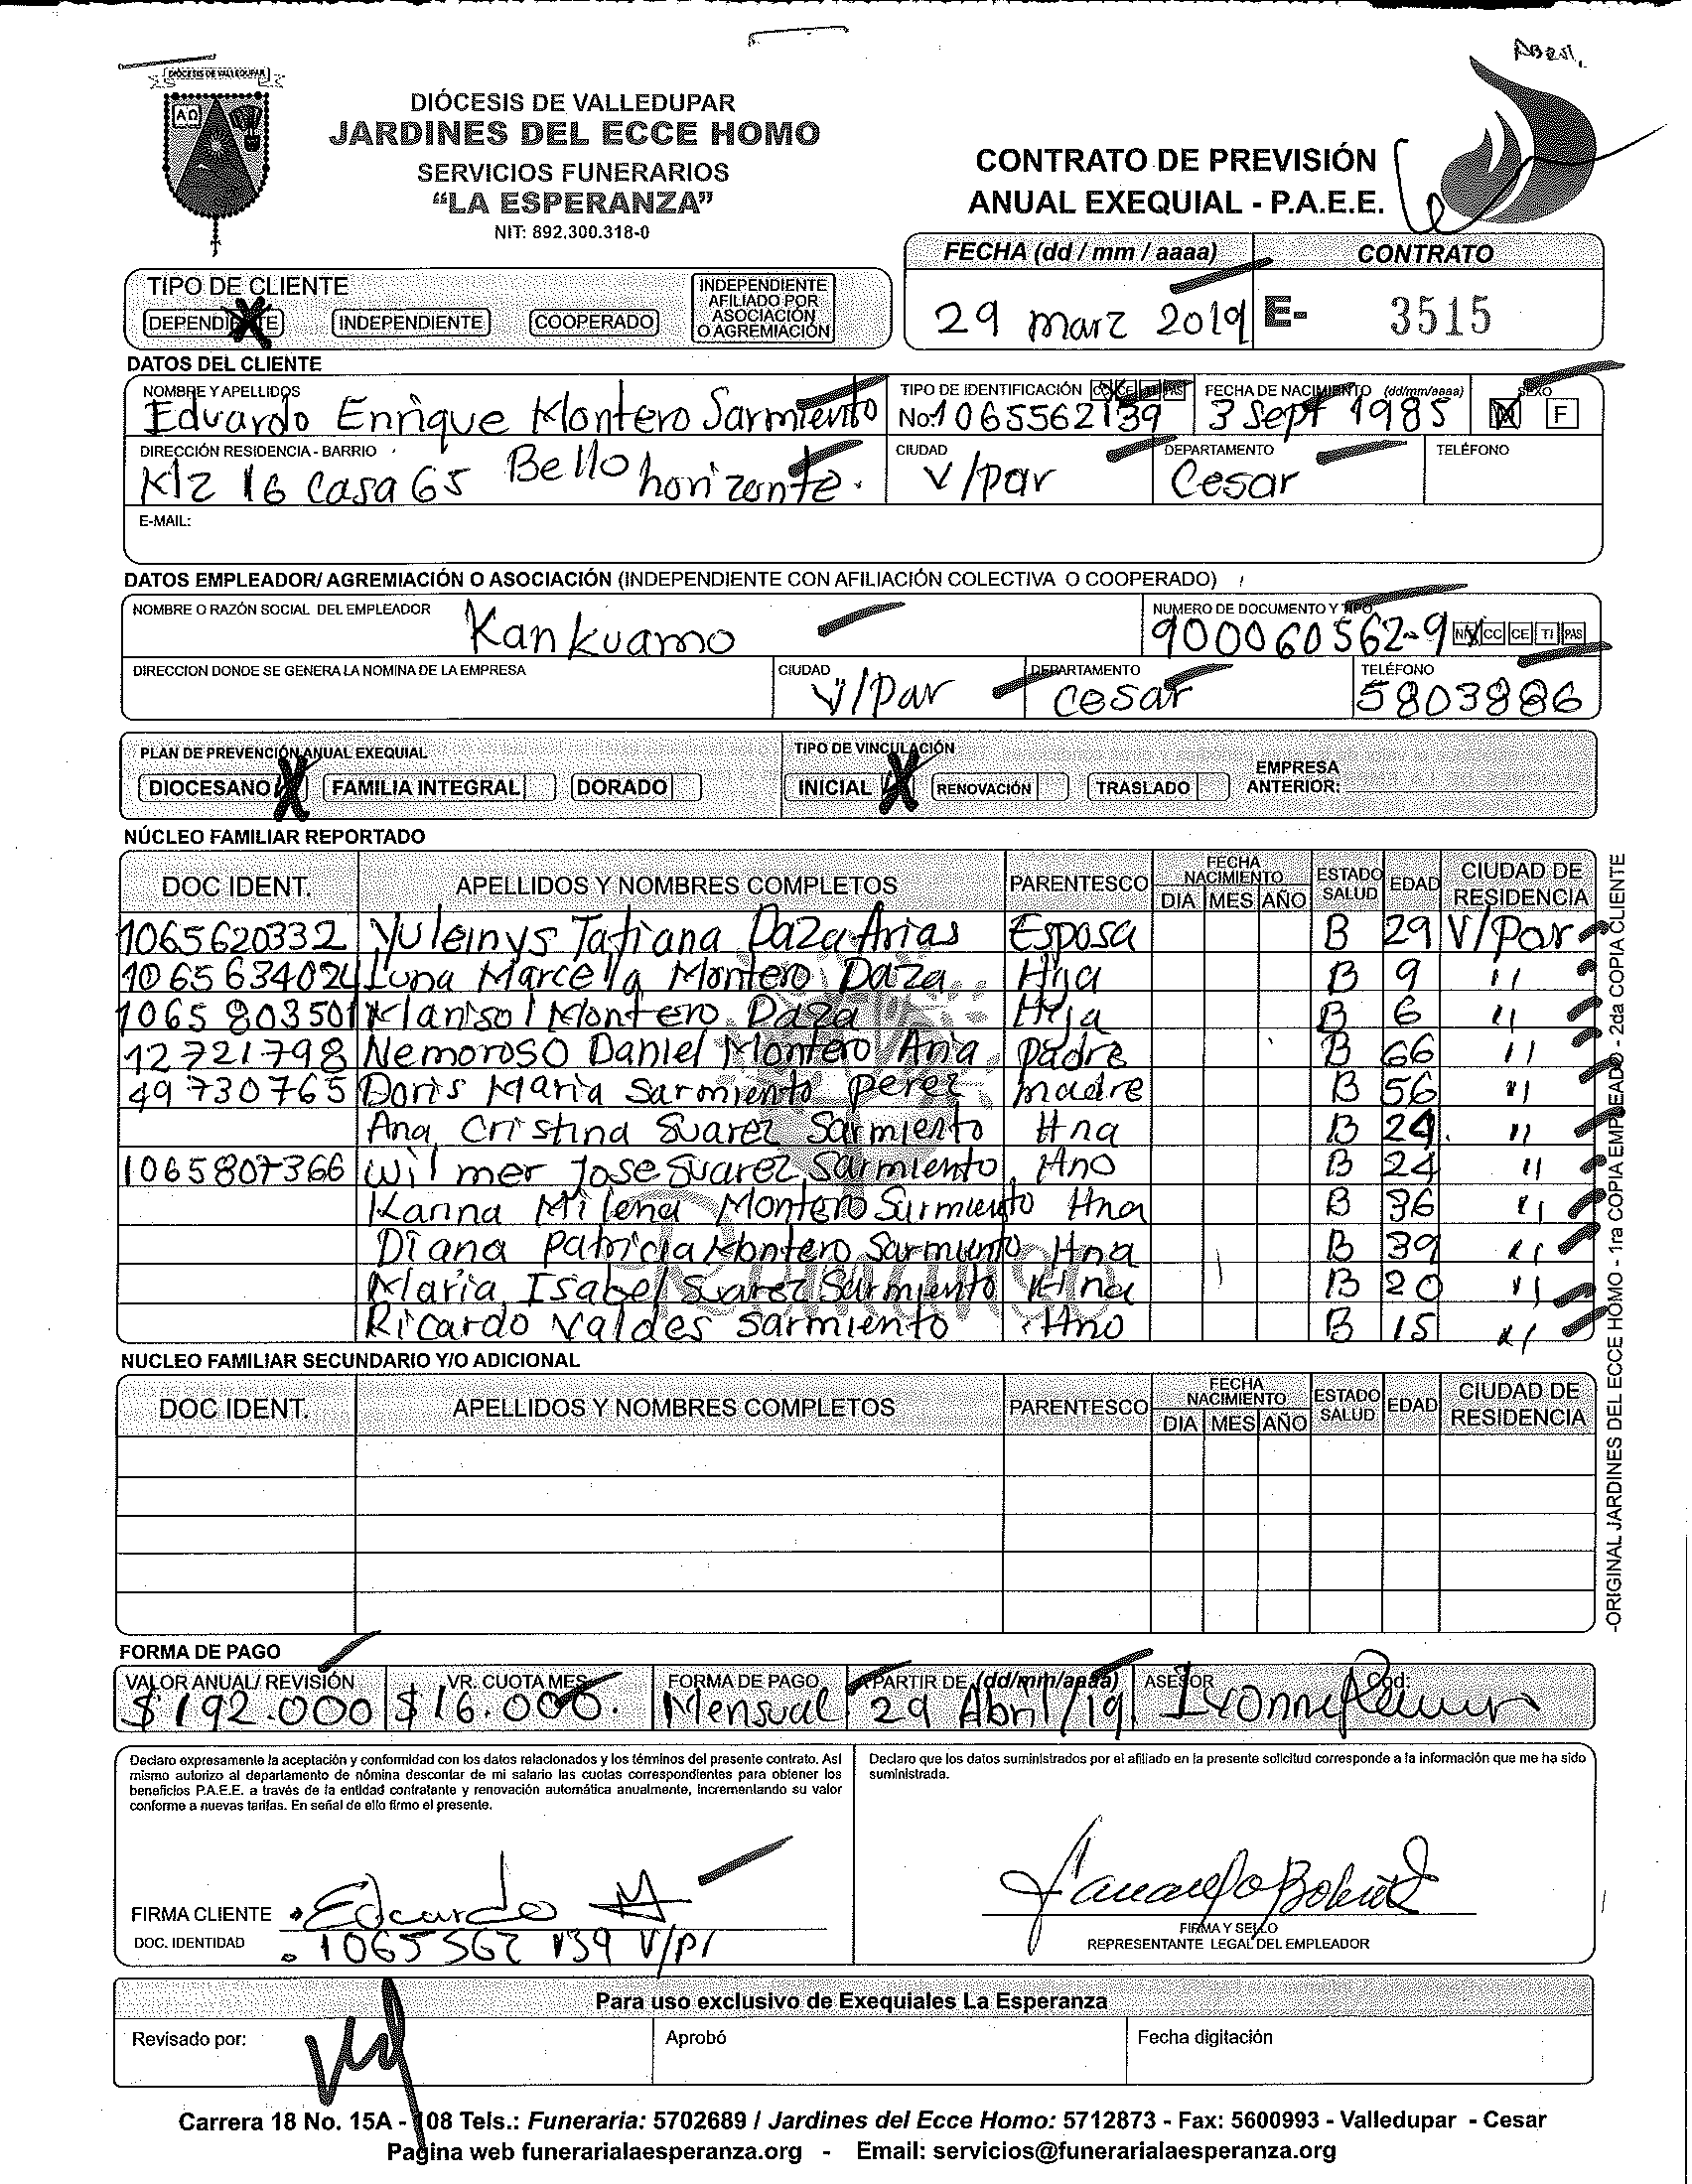 DIÓCESIS DE VALLEDUPAR
DIÓCESIS DE VALLEDUPAR
JARDINES DEL ECCE HOMO
SERVICIOS FUNERARIOS
“LA ESPERANZA”
NIT: 892.300.318-0
CONTRATO DE PREVISIÓN
ANUAL EXEQUIAL - P.A.E.E.
FECHA (dd / mm / aaaa) CONTRATO
29 marz 2019 E- 3515
TIPO DE CLIENTE
DEPENDIENTE INDEPENDIENTE COOPERADO INDEPENDIENTE AFILIADO POR ASOCIACIÓN O AGREMIACIÓN
DATOS DEL CLIENTE
NOMBRE Y APELLIDOS TIPO DE IDENTIFICACIÓN CC CE TI PAS FECHA DE NACIMIENTO (dd/mm/aaaa) SEXO
Eduardo Enrique Montero Sarmiento No. 1065562139 3 Sept 1985 M F
DIRECCIÓN RESIDENCIA - BARRIO CIUDAD DEPARTAMENTO TELÉFONO
Mz 16 Casa 65 Bello horizonte. V/par Cesar
E-MAIL:
DATOS EMPLEADOR/ AGREMIACIÓN O ASOCIACIÓN (INDEPENDIENTE CON AFILIACIÓN COLECTIVA O COOPERADO)
NOMBRE O RAZÓN SOCIAL DEL EMPLEADOR NUMERO DE DOCUMENTO Y TIPO
Kankuamo 900060562-9 NIT CC CE TI PAS
DIRECCION DONDE SE GENERA LA NOMINA DE LA EMPRESA CIUDAD DEPARTAMENTO TELÉFONO
V/Par Cesar 5803886
PLAN DE PREVENCIÓN ANUAL EXEQUIAL TIPO DE VINCULACIÓN
DIOCESANO X FAMILIA INTEGRAL DORADO INICIAL X RENOVACIÓN TRASLADO EMPRESA ANTERIOR:
NÚCLEO FAMILIAR REPORTADO
DOC IDENT. APELLIDOS Y NOMBRES COMPLETOS PARENTESCO FECHA NACIMIENTO DIA MES AÑO ESTADO SALUD EDAD CIUDAD DE RESIDENCIA
1065620332 Yuleinys Tatiana Daza Arias Esposa B 29 V/Par
1065634024 Luna Marcella Montero Daza Hija B 9 "
1065803501 Marisol Montero Daza Hija B 6 "
12721798 Nemoroso Daniel Montero Aria padre B 66 "
49730765 Doris Maria Sarmiento perez madre B 56 "
Ana Cristina Suarez Sarmiento Hna B 24 "
1065807366 Wilmer Jose Suarez Sarmiento Hno B 24 "
Karina Milena Montero Sarmiento Hna B 36 "
Diana Patricia Montero Sarmiento Hna B 39 "
Maria Isabel Suarez Sarmiento Hna B 20 "
Ricardo Valdes Sarmiento Hno B 15 "
NUCLEO FAMILIAR SECUNDARIO Y/O ADICIONAL
DOC IDENT. APELLIDOS Y NOMBRES COMPLETOS PARENTESCO FECHA NACIMIENTO DIA MES AÑO ESTADO SALUD EDAD CIUDAD DE RESIDENCIA
-ORIGINAL JARDINES DEL ECCE HOMO - 1ra COPIA EMPLEADO - 2da COPIA CLIENTE
FORMA DE PAGO
VALOR ANUAL/ REVISIÓN VR. CUOTA MES FORMA DE PAGO A PARTIR DE (dd/mm/aaaa) ASESOR Cod:
$ 192.000 $ 16.000. Mensual 29 Abril/19 Ivonne
Declaro expresamente la aceptación y conformidad con los datos relacionados y los términos del presente contrato. Así
mismo autorizo al departamento de nómina descontar de mi salario las cuotas correspondientes para obtener los
beneficios P.A.E.E. a través de la entidad contratante y renovación automática anualmente, incrementando su valor
conforme a nuevas tarifas. En señal de ello firmo el presente.
Declaro que los datos suministrados por el afiliado en la presente solicitud corresponde a la información que me ha sido
suministrada.
FIRMA CLIENTE Eduardo M
DOC. IDENTIDAD 1065562139 V/P
FIRMA Y SELLO
REPRESENTANTE LEGAL DEL EMPLEADOR
Para uso exclusivo de Exequiales La Esperanza
Revisado por: Aprobó Fecha digitación
Carrera 18 No. 15A - 108 Tels.: Funeraria: 5702689 / Jardines del Ecce Homo: 5712873 - Fax: 5600993 - Valledupar - Cesar
Pagina web funerarialaesperanza.org - Email: servicios@funerarialaesperanza.org